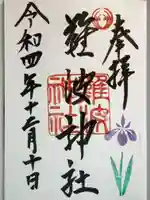 奉拝
難波神社
難波
神社
令和四年十二月十日